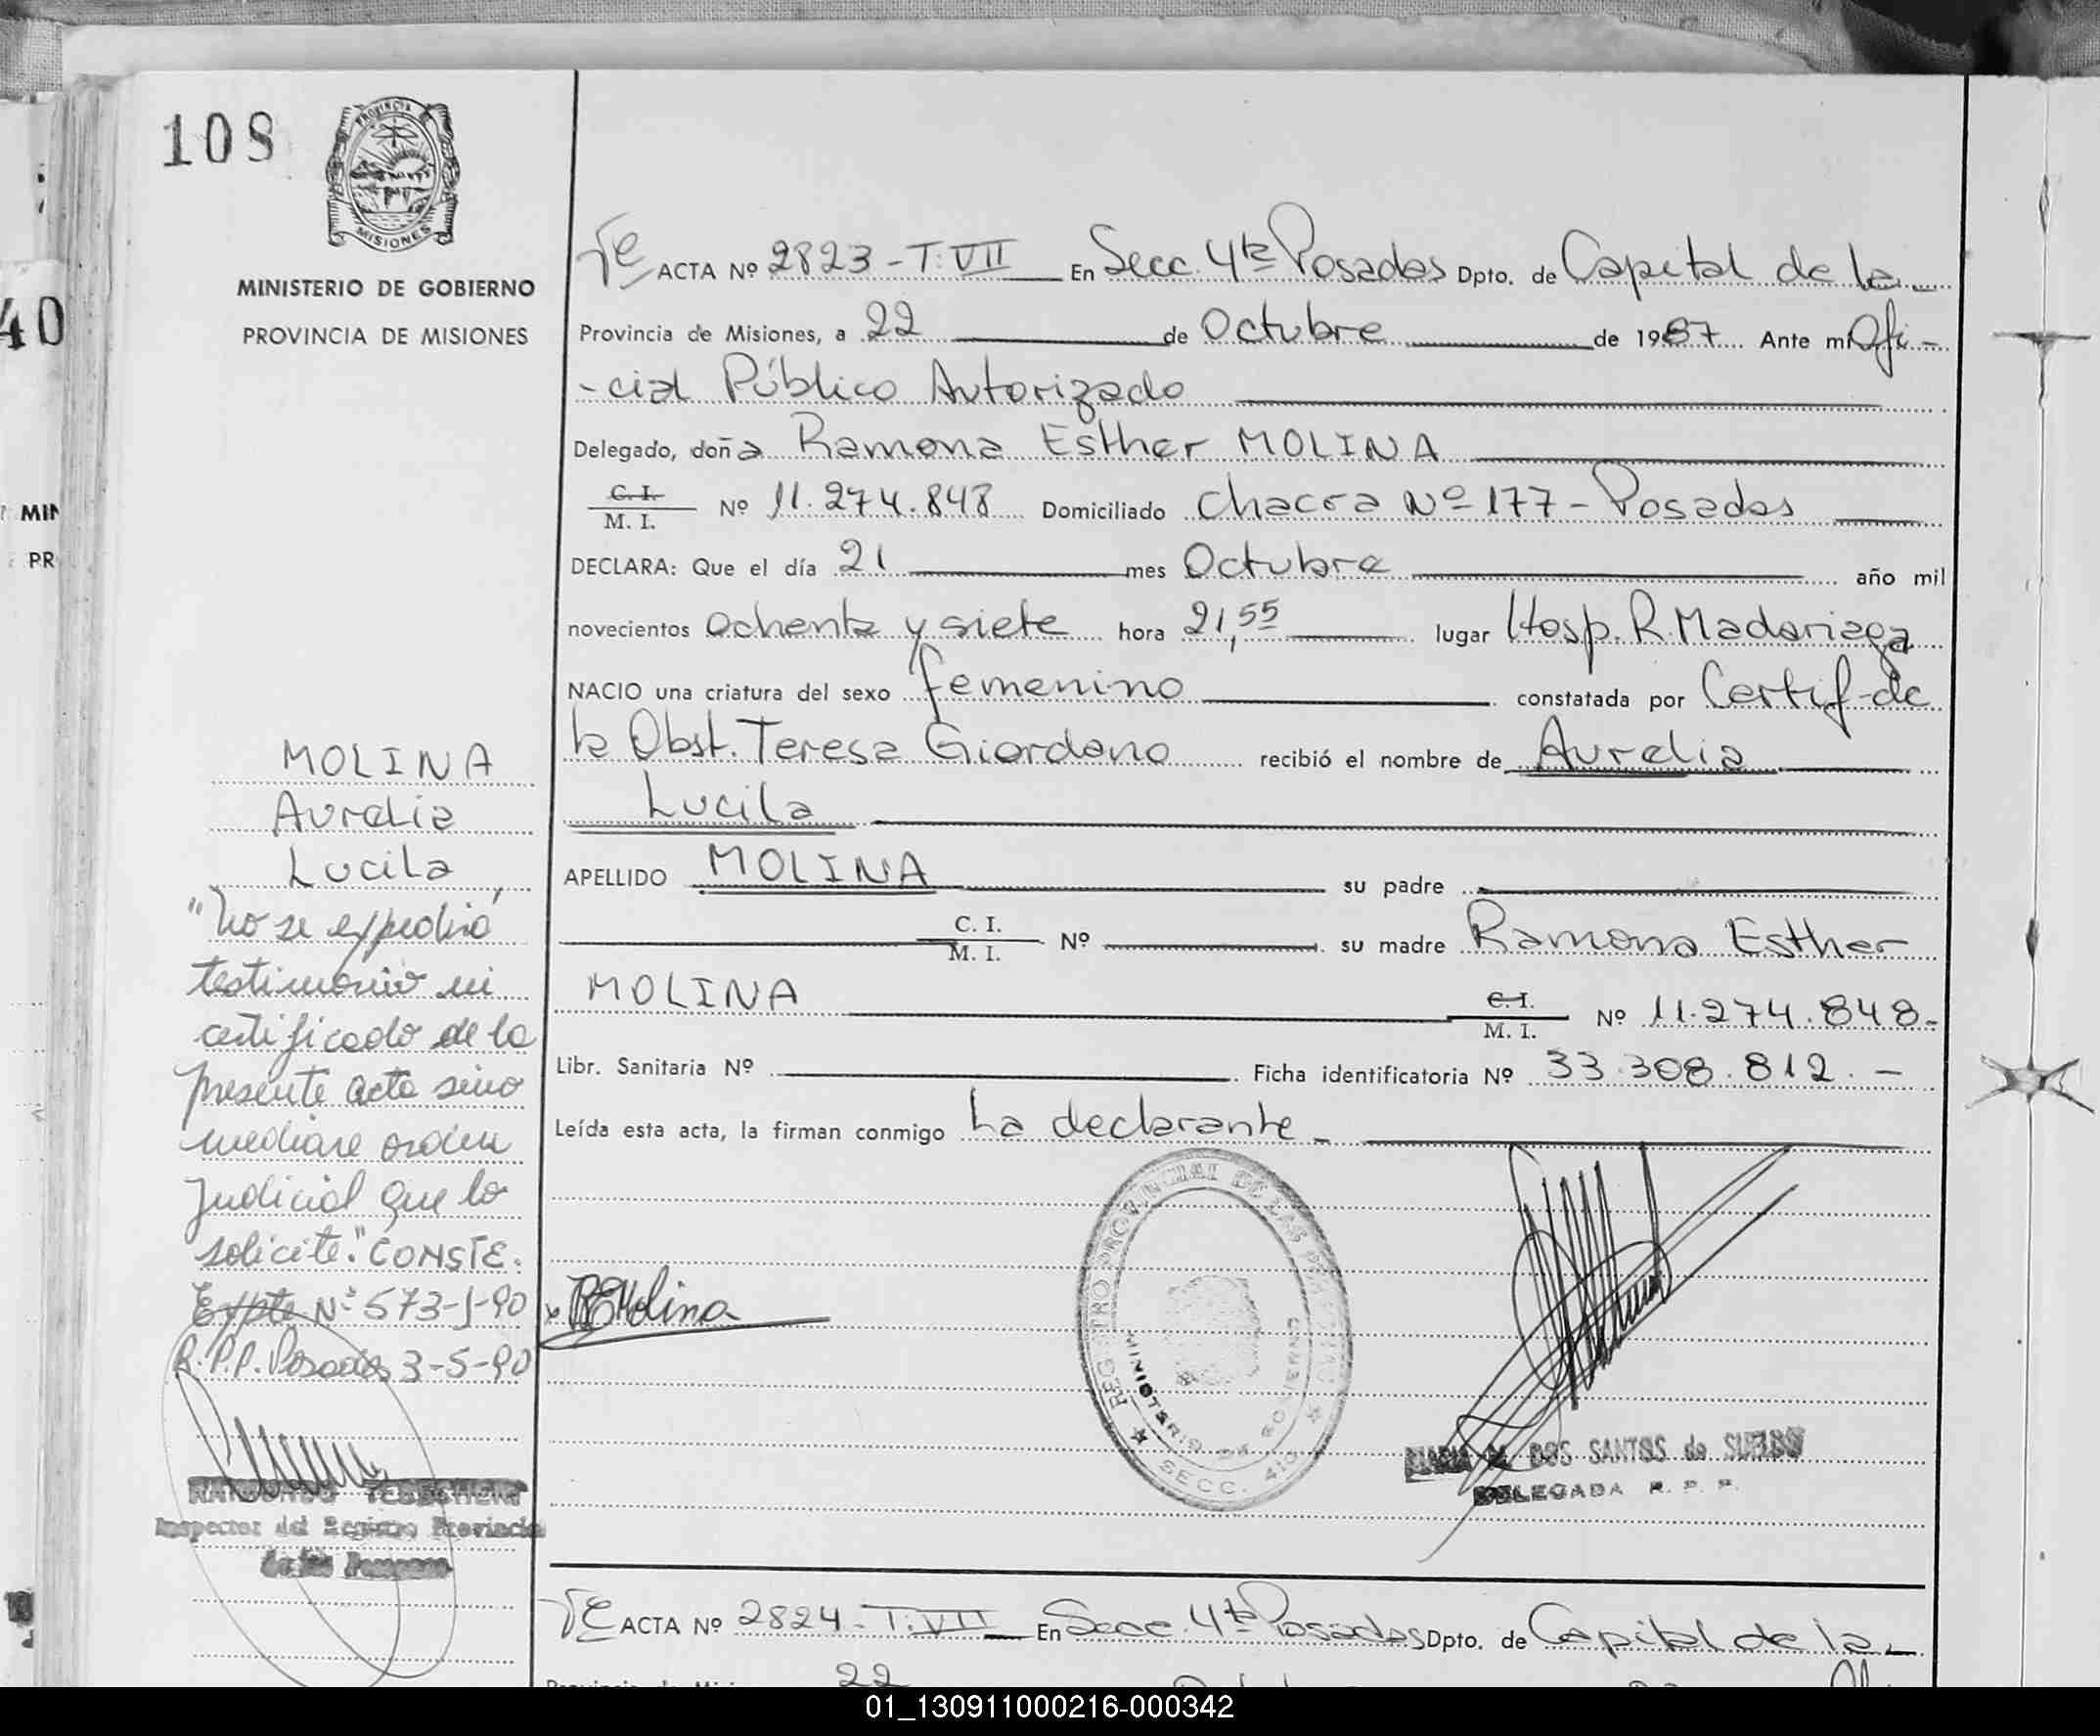 108
PROVINCIA
MISIONES
MINISTERIO DE GOBIERNO
PROVINCIA DE MISIONES
40
MIN
PR
ACTA Nº 2823-T:VII En Secc. 4ta Posadas Dpto. de Capital de la
Provincia de Misiones, a 22 de Octubre de 1987 Ante mí Ofi-
-cial Público Autorizado
Delegado, doña Ramona Esther MOLINA
C. I.
M. I. Nº 11.274.848 Domiciliado Chacra Nº 177-Posadas
DECLARA: Que el día 21 mes Octubre año mil
novecientos ochenta y siete hora 21,55 lugar Hosp. R. Madariaga
NACIO una criatura del sexo femenino constatada por Certif-de
la Obst. Teresa Giordano recibió el nombre de Aurelia
Lucila
APELLIDO MOLINA su padre
C. I.
M. I. Nº su madre Ramona Esther
MOLINA C. I.
M. I. Nº 11.274.848-
Libr. Sanitaria Nº Ficha identificatoria Nº 33.308.812.-
Leída esta acta, la firman conmigo La declarante-
MOLINA
Aurelia
Lucila
"No se expedirá
testimonio ni
certificado de la
presente acta sino
mediare orden
Judicial que lo
solicite." CONSTE.
Expte Nº 573-J-90
R.P.P. Posadas 3-5-90
Inspector del Registro Provincial
de las Personas
REMolina
REGISTRO PROVINCIAL DE LAS PERSONAS
MINISTERIO DE GOBIERNO
SECC. 4ta
MARIA DOS SANTOS de SUELDO
DELEGADA R. P. P.
ACTA Nº 2824-T:VII En Secc. 4ta Posadas Dpto. de Capital de la
22
01_130911000216-000342